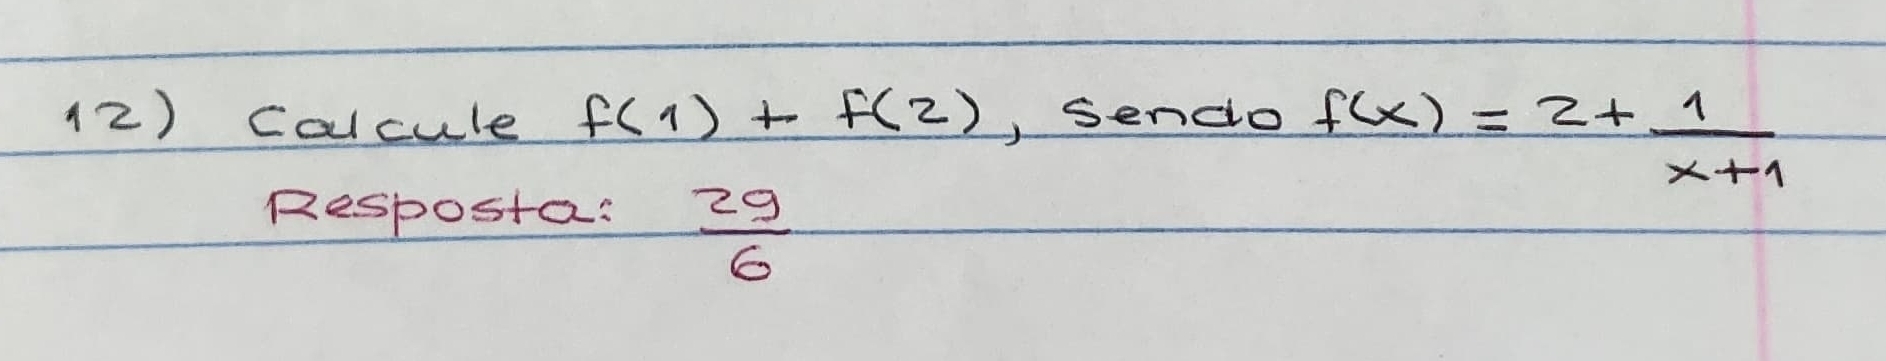 12) Calcule f(1) + f(2), sendo f(x) = 2 + 1/(x+1)
Resposta: 29/6